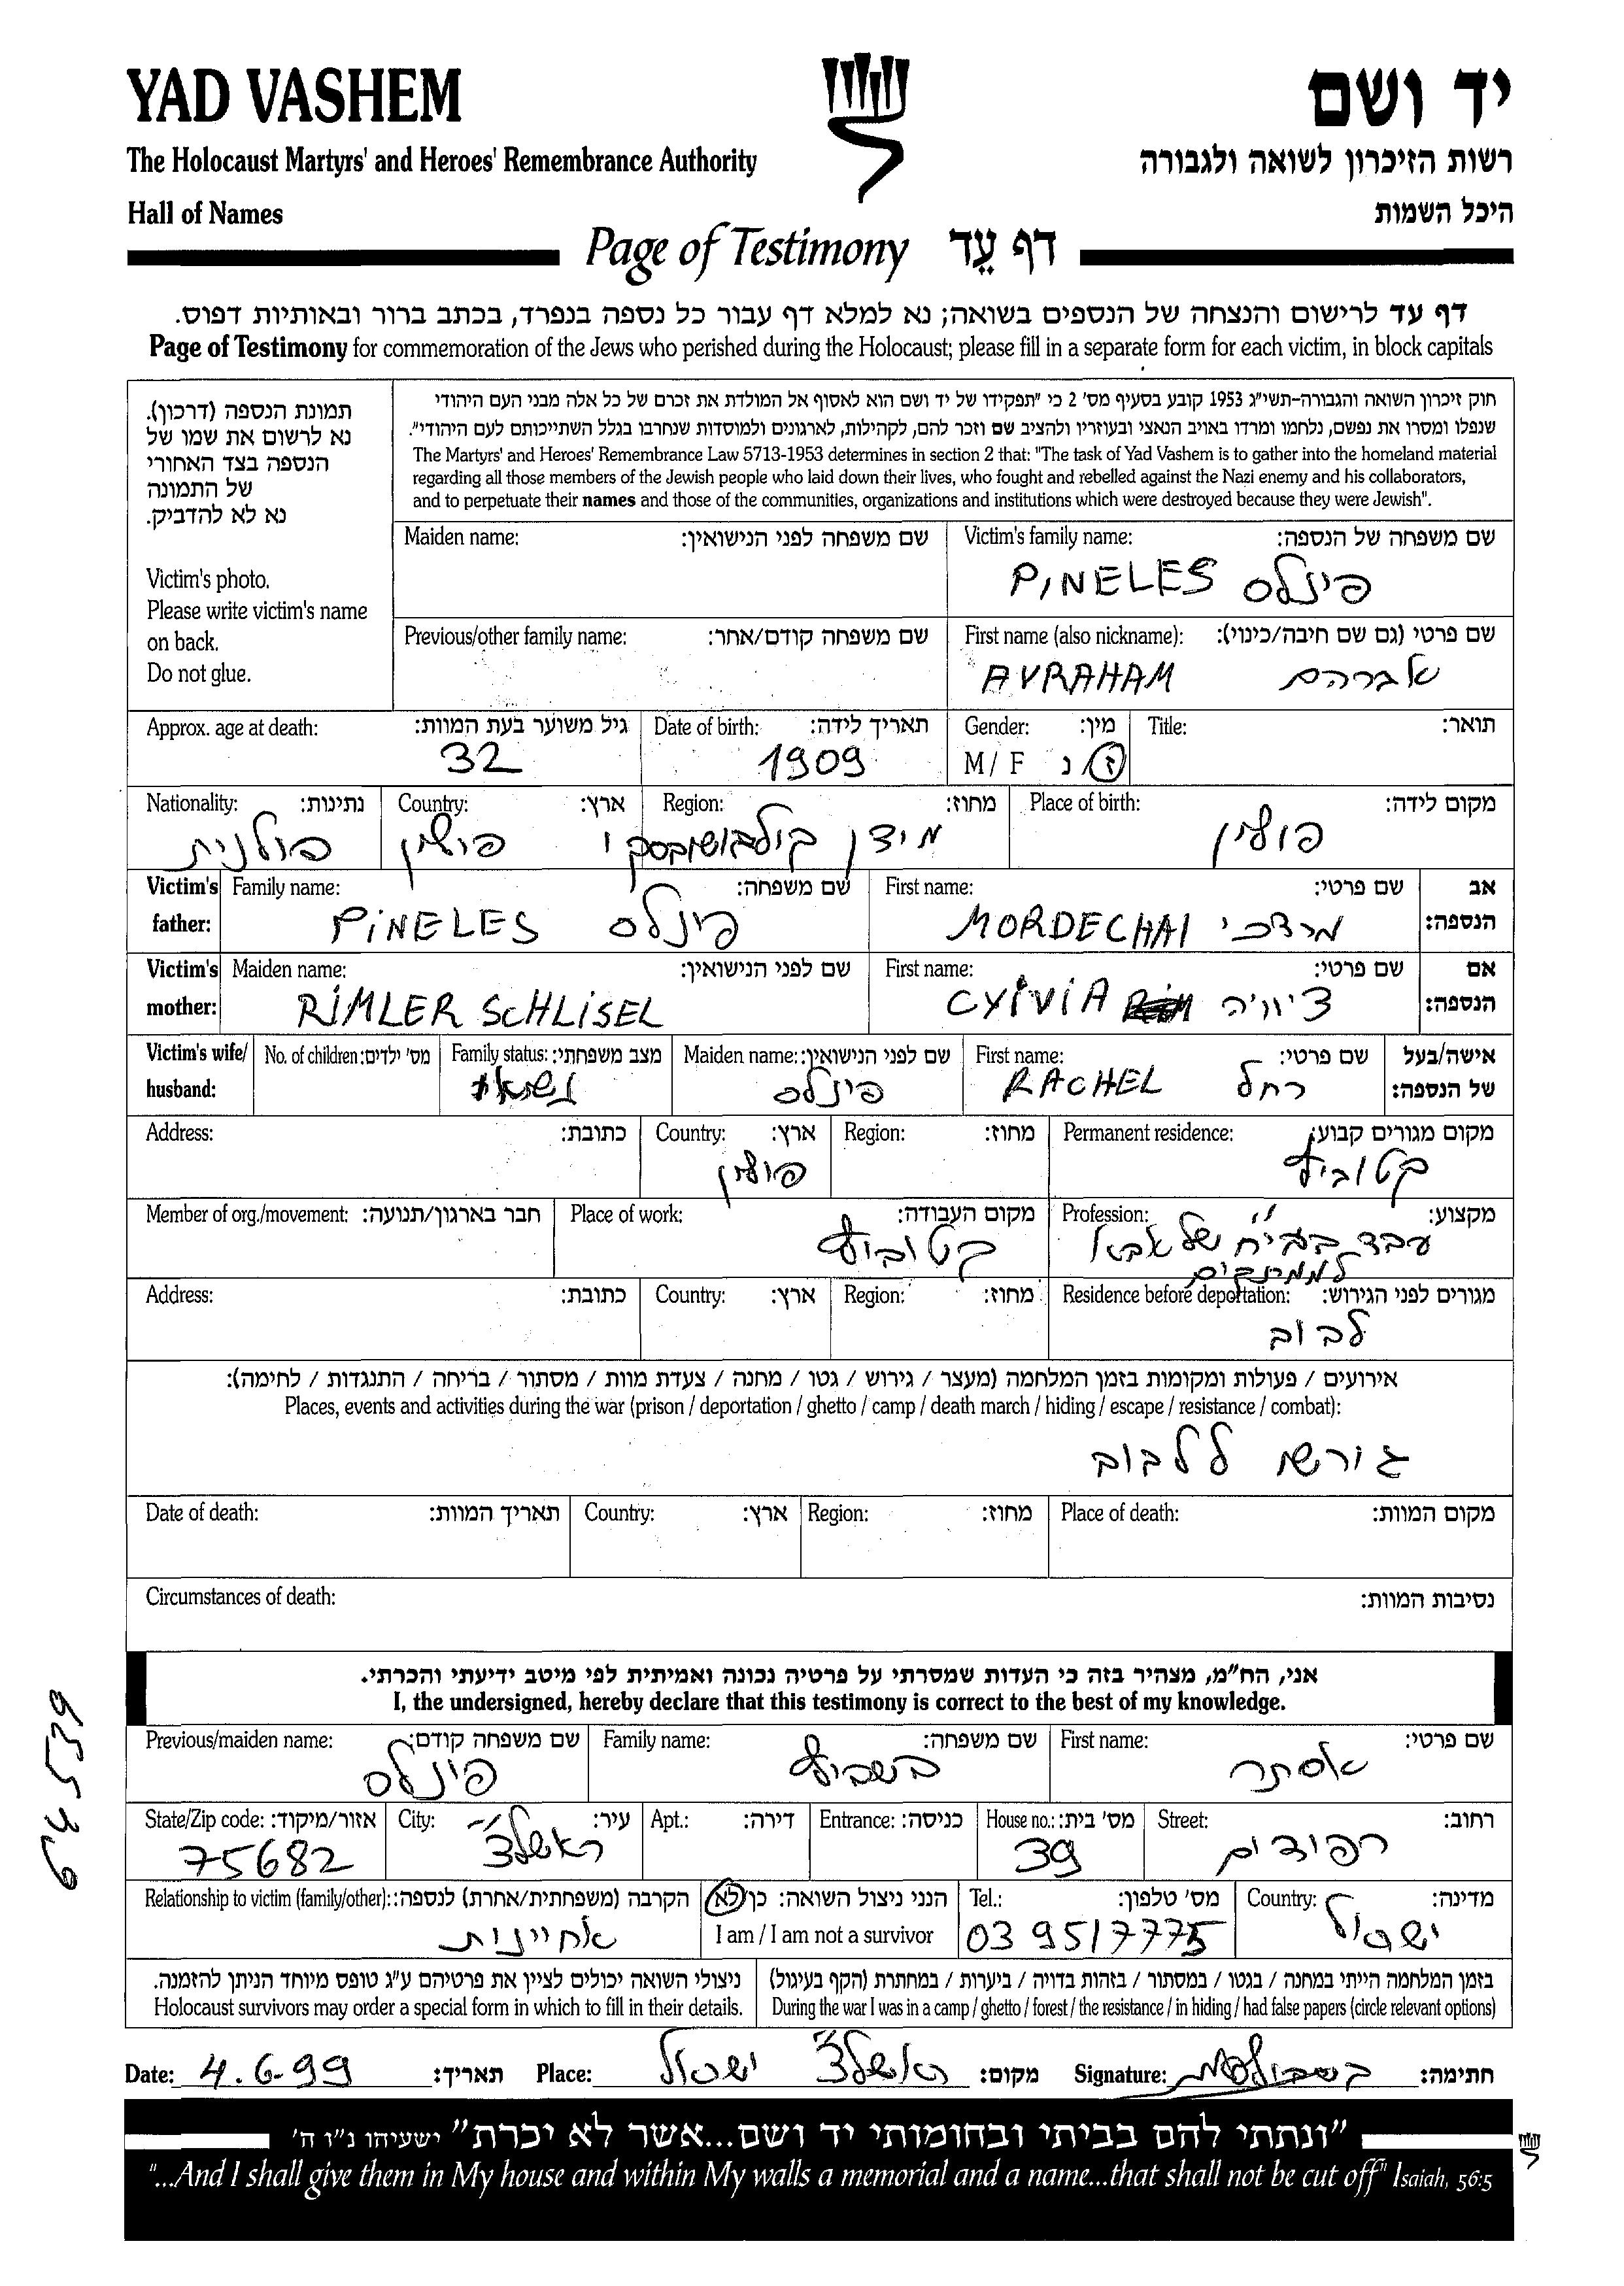 YAD VASHEM
יד ושם
The Holocaust Martyrs' and Heroes' Remembrance Authority
רשות הזיכרון לשואה ולגבורה
Hall of Names
היכל השמות
Page of Testimony דף עֵד
דף עד לרישום והנצחה של הנספים בשואה; נא למלא דף עבור כל נספה בנפרד, בכתב ברור ובאותיות דפוס.
Page of Testimony for commemoration of the Jews who perished during the Holocaust; please fill in a separate form for each victim, in block capitals
תמונת הנספה (דרכון).
נא לרשום את שמו של
הנספה בצד האחורי
של התמונה
נא לא להדביק.
Victim's photo.
Please write victim's name
on back.
Do not glue.
חוק זיכרון השואה והגבורה-תשי"ג 1953 קובע בסעיף מס' 2 כי "תפקידו של יד ושם הוא לאסוף אל המולדת את זכרם של כל אלה מבני העם היהודי
שנפלו ומסרו את נפשם, נלחמו ומרדו באויב הנאצי ובעוזריו ולהציב שם וזכר להם, לקהילות, לארגונים ולמוסדות שנחרבו בגלל השתייכותם לעם היהודי".
The Martyrs' and Heroes' Remembrance Law 5713-1953 determines in section 2 that: "The task of Yad Vashem is to gather into the homeland material
regarding all those members of the Jewish people who laid down their lives, who fought and rebelled against the Nazi enemy and his collaborators,
and to perpetuate their names and those of the communities, organizations and institutions which were destroyed because they were Jewish".
Maiden name: שם משפחה לפני הנישואין:
Victim's family name: שם משפחה של הנספה:
PINELES פינלס
Previous/other family name: שם משפחה קודם/אחר:
First name (also nickname): שם פרטי (גם שם חיבה/כינוי):
AVRAHAM אברהם
Approx. age at death: גיל משוער בעת המוות:
32
Date of birth: תאריך לידה:
1909
Gender: מין:
M / F ז נ
Title: תואר:
Nationality: נתינות:
פולנית
Country: ארץ:
פולין
Region: מחוז:
מידן
Place of birth: מקום לידה:
פולין
Victim's father: אב הנספה:
Family name: שם משפחה:
PINELES פינלס
First name: שם פרטי:
MORDECHAI מרדכי
Victim's mother: אם הנספה:
Maiden name: שם לפני הנישואין:
RIMLER SCHLISEL
First name: שם פרטי:
CYIVIA ציויה
Victim's wife/ husband: אישה/בעל של הנספה:
No. of children: מס' ילדים:
Family status: מצב משפחתי:
נשוא
Maiden name: שם לפני הנישואין:
פינלס
First name: שם פרטי:
RACHEL רחל
Address: כתובת:
Country: ארץ:
פולין
Region: מחוז:
Permanent residence: מקום מגורים קבוע:
קטוביץ
Member of org./movement: חבר בארגון/תנועה:
Place of work: מקום העבודה:
קטוביץ
Profession: מקצוע:
עבד בביח של אבא
לממתקים
Address: כתובת:
Country: ארץ:
Region: מחוז:
Residence before deportation: מגורים לפני הגירוש:
לבוב
אירועים / פעולות ומקומות בזמן המלחמה (מעצר / גירוש / גטו / מחנה / צעדת מוות / מסתור / בריחה / התנגדות / לחימה):
Places, events and activities during the war (prison / deportation / ghetto / camp / death march / hiding / escape / resistance / combat):
גורש ללבוב
Date of death: תאריך המוות:
Country: ארץ:
Region: מחוז:
Place of death: מקום המוות:
Circumstances of death: נסיבות המוות:
אני, הח"מ, מצהיר בזה כי העדות שמסרתי על פרטיה נכונה ואמיתית לפי מיטב ידיעתי והכרתי.
I, the undersigned, hereby declare that this testimony is correct to the best of my knowledge.
64539
Previous/maiden name: שם משפחה קודם:
פינלס
Family name: שם משפחה:
First name: שם פרטי:
אסתר
State/Zip code: אזור/מיקוד:
75682
City: עיר:
ראשל"צ
Apt.: דירה:
Entrance: כניסה:
House no.: מס' בית:
39
Street: רחוב:
רפידים
Relationship to victim (family/other): הקרבה (משפחתית/אחרת) לנספה:
אחיינית
הנני ניצול השואה: כן לא
I am / I am not a survivor
Tel.: מס' טלפון:
03 9517775
Country: מדינה:
ישראל
ניצולי השואה יכולים לציין את פרטיהם ע"ג טופס מיוחד הניתן להזמנה.
Holocaust survivors may order a special form in which to fill in their details.
בזמן המלחמה הייתי במחנה / בגטו / במסתור / בזהות בדויה / ביערות / במחתרת (הקף בעיגול)
During the war I was in a camp / ghetto / forest / the resistance / in hiding / had false papers (circle relevant options)
Date: 4.6.99 תאריך:
Place: ראשל"צ ישראל מקום:
Signature: חתימה:
"ונתתי להם בביתי ובחומותי יד ושם...אשר לא יכרת" ישעיהו נ"ו ה'
"...And I shall give them in My house and within My walls a memorial and a name...that shall not be cut off" Isaiah, 56:5